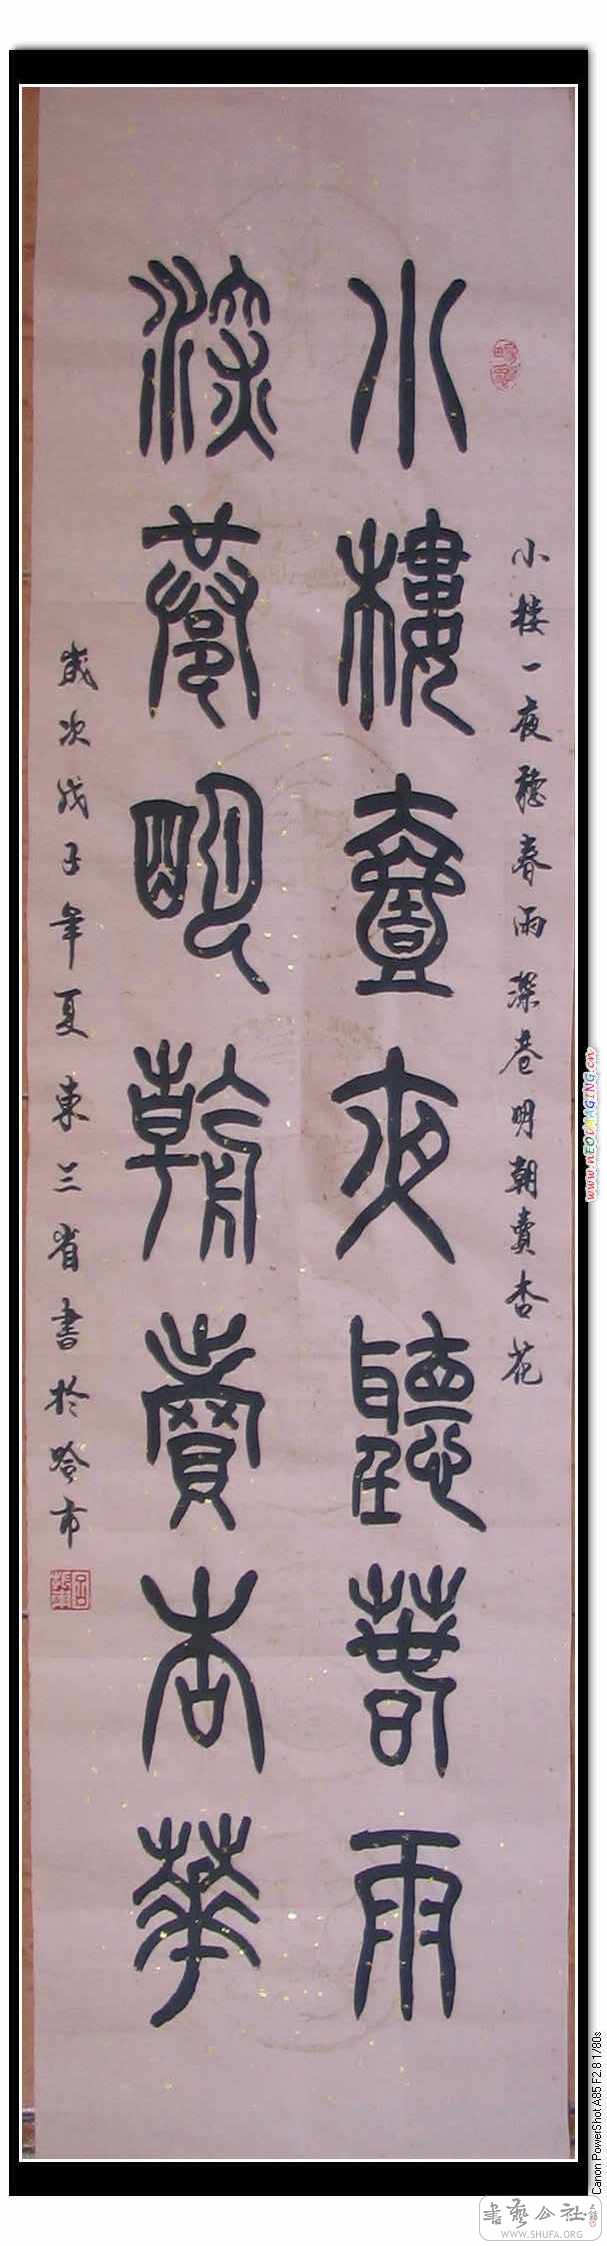 小樓一夜聽春雨深巷明朝賣杏花
小樓壹夜聽萅雨
深巷明朝賣杏華
歲次戊子年夏東三省書於哈市
www.nEOIMAGING.cn
Canon PowerShot A85 F2.8 1/80s
書藝公社
WWW.SHUFA.ORG